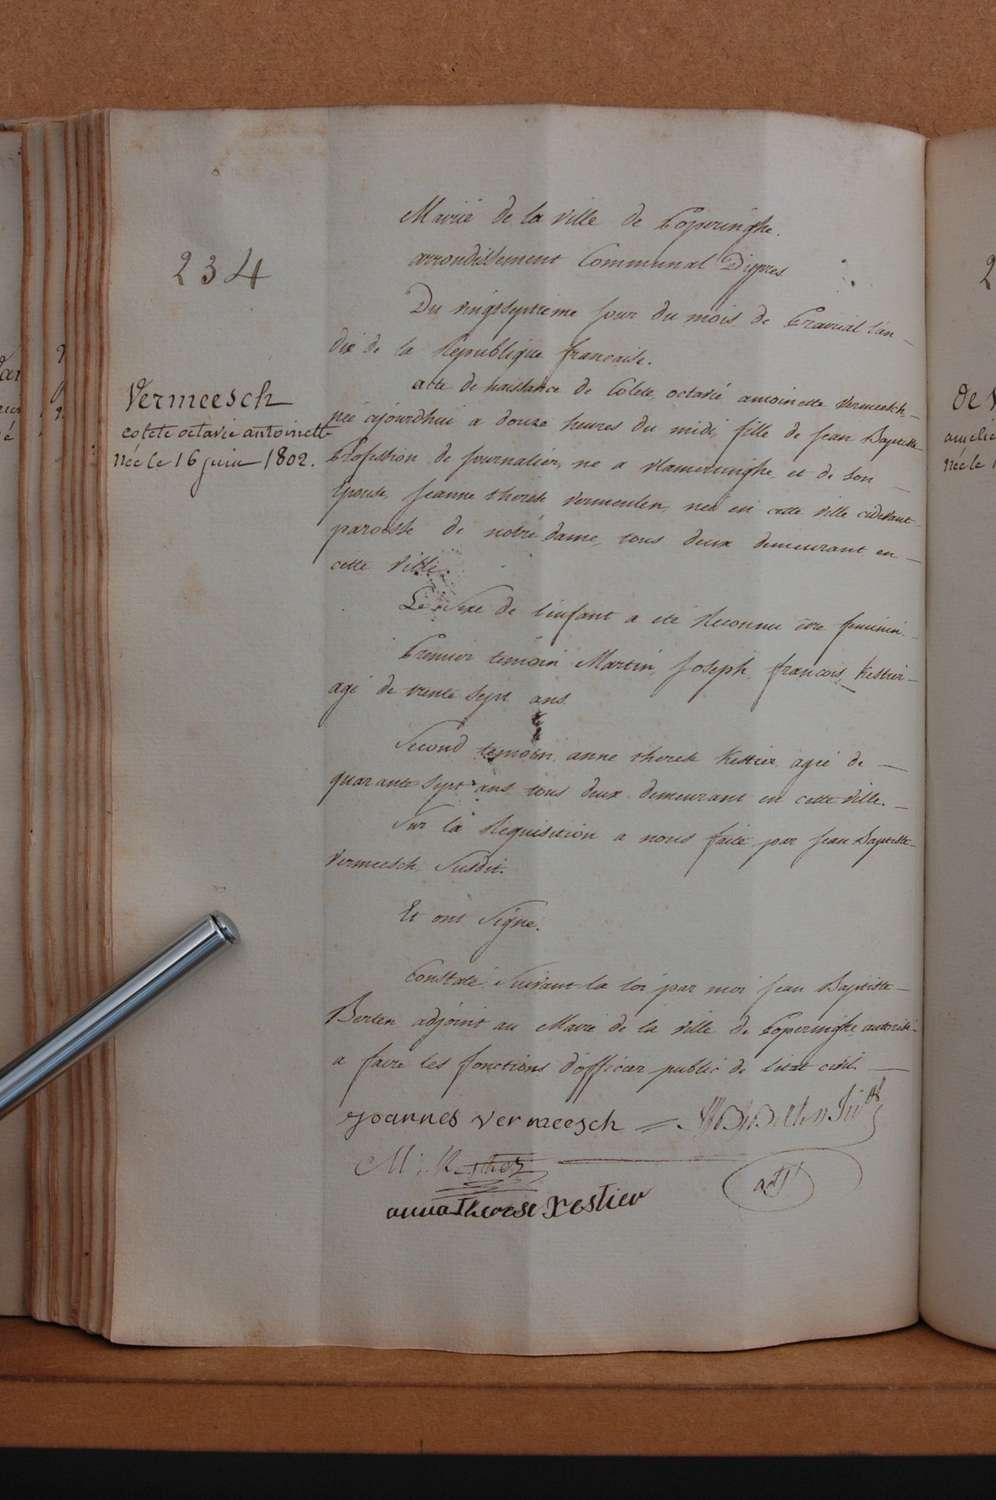 234
Vermeesch
colete octavie antoinette
née le 16 juin 1802.
Mairie de la ville de Poperinghe.
arrondissement Communal D'ypres
Du vingt septieme jour du mois de Prairial l'an
dix de la Republique francaise.
acte de naissance de Colete, octavie antoinette Vermeesch
née ajourdhui a douze heures du midi, fille de jean Baptiste
Profession de journalier, né a Vlameringhe, et de son
Epouse, jeanne therese Vermeulen, neé en cette ville cidevant
paroisse de notre dame, tous deux demeurant en
cette Ville.
Le Sexe de l'enfant a eté Reconnu être feminin.
Premier temoin Martin, joseph, francois, Kestier
agé de trente sept ans
Second temoin anne therese Kestier agée de
quarante sept ans tous deux demeurant en cette ville.
Sur la Requisition a nous faite par jean Baptiste
Vermeesch, Susdit.
Et ont Signé.
Constaté Suivant la loi par moi jean Baptiste
Berten adjoint au Maire de la ville de Poperinghe autorisé
a faire les fonctions d'officier public de l'etat civil.
joannes vermeesch
anna Therese Kestier
adjt